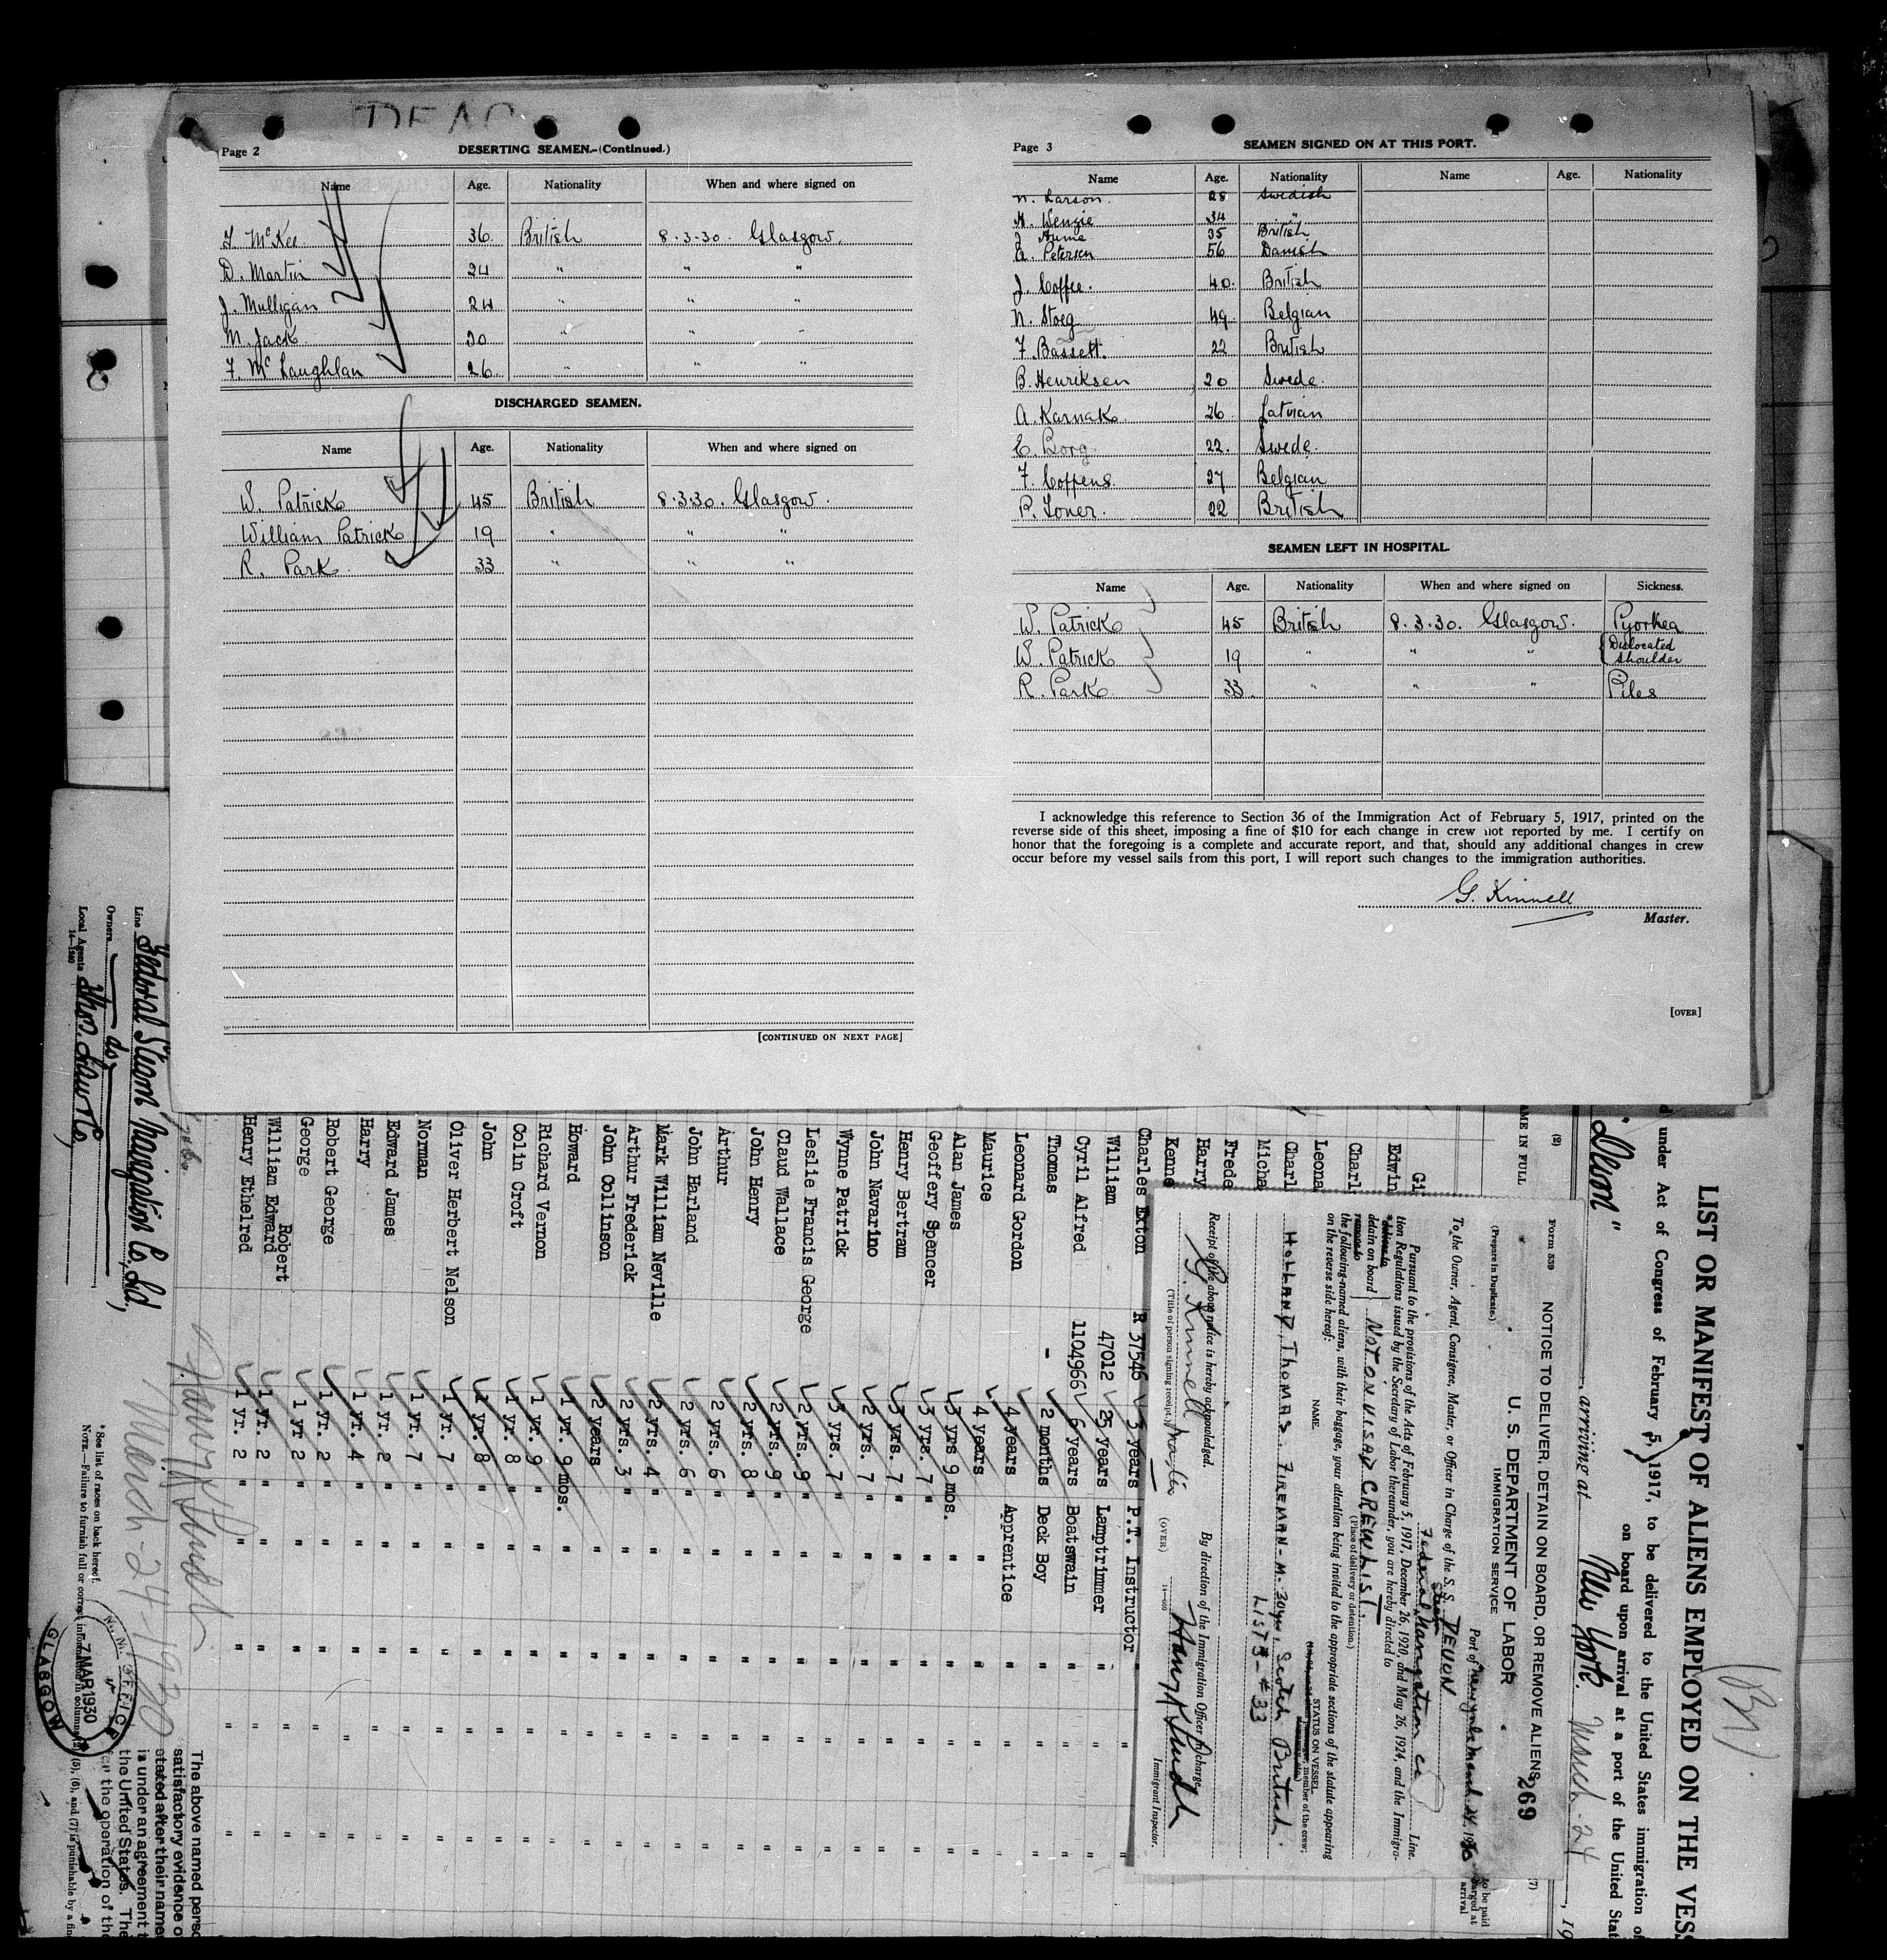 Page 2 DESERTING SEAMEN.-(Continued.)
Name Age. Nationality When and where signed on
F. McKee 36 British 8.3.30. Glasgow.
D. Martin 24 " " "
J. Mulligan 24 " " "
M. Jack 20 " " "
F. McLaughlan 26 " " "
DISCHARGED SEAMEN.
Name Age. Nationality When and where signed on
W. Patrick 45 British 8.3.30. Glasgow.
William Patrick 19 " " "
R. Park 33 " " "
[CONTINUED ON NEXT PAGE]
Page 3 SEAMEN SIGNED ON AT THIS PORT.
Name Age. Nationality Name Age. Nationality
N. Larson. 28 Swedish
34 "
J. 35 British
Petersen 56 Danish
J. Coffee. 40. British
N. Stoeg 49. Belgian
F. Bassett. 22 British
B. Henriksen 20 Swede.
A. Karnak 26. Latvian
E. Borg 22. Swede.
F. Coppens 27 Belgian
P. Toner. 22 British
SEAMEN LEFT IN HOSPITAL.
Name Age. Nationality When and where signed on Sickness.
W. Patrick 45 British 8.3.30. Glasgow. Pyorhea
W. Patrick 19 " " " Dislocated shoulder
R. Park 33. " " " Piles
I acknowledge this reference to Section 36 of the Immigration Act of February 5, 1917, printed on the
reverse side of this sheet, imposing a fine of $10 for each change in crew not reported by me. I certify on
honor that the foregoing is a complete and accurate report, and that, should any additional changes in crew
occur before my vessel sails from this port, I will report such changes to the immigration authorities.
G. Kinnell
Master.
[OVER]
LIST OR MANIFEST OF ALIENS EMPLOYED ON THE VESS
under Act of Congress of February 5, 1917, to be delivered to the United States immigration of
on board upon arrival at a port of the United Stat
"Devon" arriving at New York. March - 24, 19
(2)
(7)
AME IN FULL
to be paid
arrival
Form 539
NOTICE TO DELIVER, DETAIN ON BOARD, OR REMOVE ALIENS
269
(Prepare in Duplicate.)
U. S. DEPARTMENT OF LABOR
IMMIGRATION SERVICE
Port of
To the Owner, Agent, Consignee, Master, or Officer in Charge of the S. S. DEVON
Federal Steam Navigation Co Line.
Pursuant to the provisions of the Acts of February 5, 1917, December 26, 1920, and May 26, 1924, and the Immigra-
tion Regulations issued by the Secretary of Labor thereunder, you are hereby directed to
detain on board NOT ON VISAD CREW LIST.
(Place of delivery or detention.)
the following-named aliens, with their baggage, your attention being invited to the appropriate sections of the statute appearing
on the reverse side hereof:
NAME. STATUS ON VESSEL
HOLLAND, THOMAS. FIREMAN - M. 30yr. Scotch British.
LIST 3 - #33
Receipt of the above notice is hereby acknowledged. By direction of the Immigration Officer in Charge,
G. Kinnell Master
(Title of person signing receipt.)
Immigrant Inspector.
(OVER)
Gi
Edwin
Charl
Leona
Charl
Micha
Frede
Harry
Kenne
Charles Exton R 37546 3 years P.T. Instructor "
William 47012 25 years Lamptrimmer " "
Cyril Alfred 1104966 6 years Boatswain " " "
Thomas - 2 months Deck Boy " " "
Leonard Gordon 4 years Apprentice " " "
Maurice 4 years " " " "
Alan James 3 yrs 9 mos. " " " "
Geoffery Spencer 3 yrs. 7 " " " " "
Henry Bertram 3 yrs. 7 " " " " "
John Navarino 2 yrs. 7 " " " " "
Wynne Patrick 3 yrs. 7 " " " " "
Leslie Francis George 2 yrs. 9 " " " " "
Claud Wallace 2 yrs. 9 " " " " "
John Henry 2 yrs. 8 " " " " "
Arthur 2 yrs. 6 " " " " "
John Harland 2 yrs. 6 " " " " "
Mark William Neville 2 yrs. 4 " " " " "
Arthur Frederick 2 yrs. 3 " " " " "
John Collinson 2 years " " " "
Howard 1 yr. 9 mos. " " " "
Richard Vernon 1 yr. 9 " " " " "
Colin Croft 1 yr. 8 " " " " "
John 1 yr. 8 " " " " "
Oliver Herbert Nelson 1 yr. 7 " " " " "
Norman 1 yr. 7 " " " " "
Edward James 1 yr. 2 " " " " "
Harry 1 yr. 4 " " " " "
Robert George 1 yr. 2 " " " " "
George 1 yr 2 " " " " "
Robert
William Edward 1 yr. 2 " " " " "
Henry Ethelred 1 yr. 2 " " " " "
March - 24 - 1930
Line Federal Steam Navigation Co, Ld,
Owners do
Local Agents
14-1240
* See list of races on back hereof.
NOTE.—Failure to furnish full or correct information in columns (2) (5), (6), and (7) is punishable by a fin
7 MAR 1930
GLASGOW
The above named perso
satisfactory evidence o
stated after their name
is under an agreement t
the United States. The
the operation of the